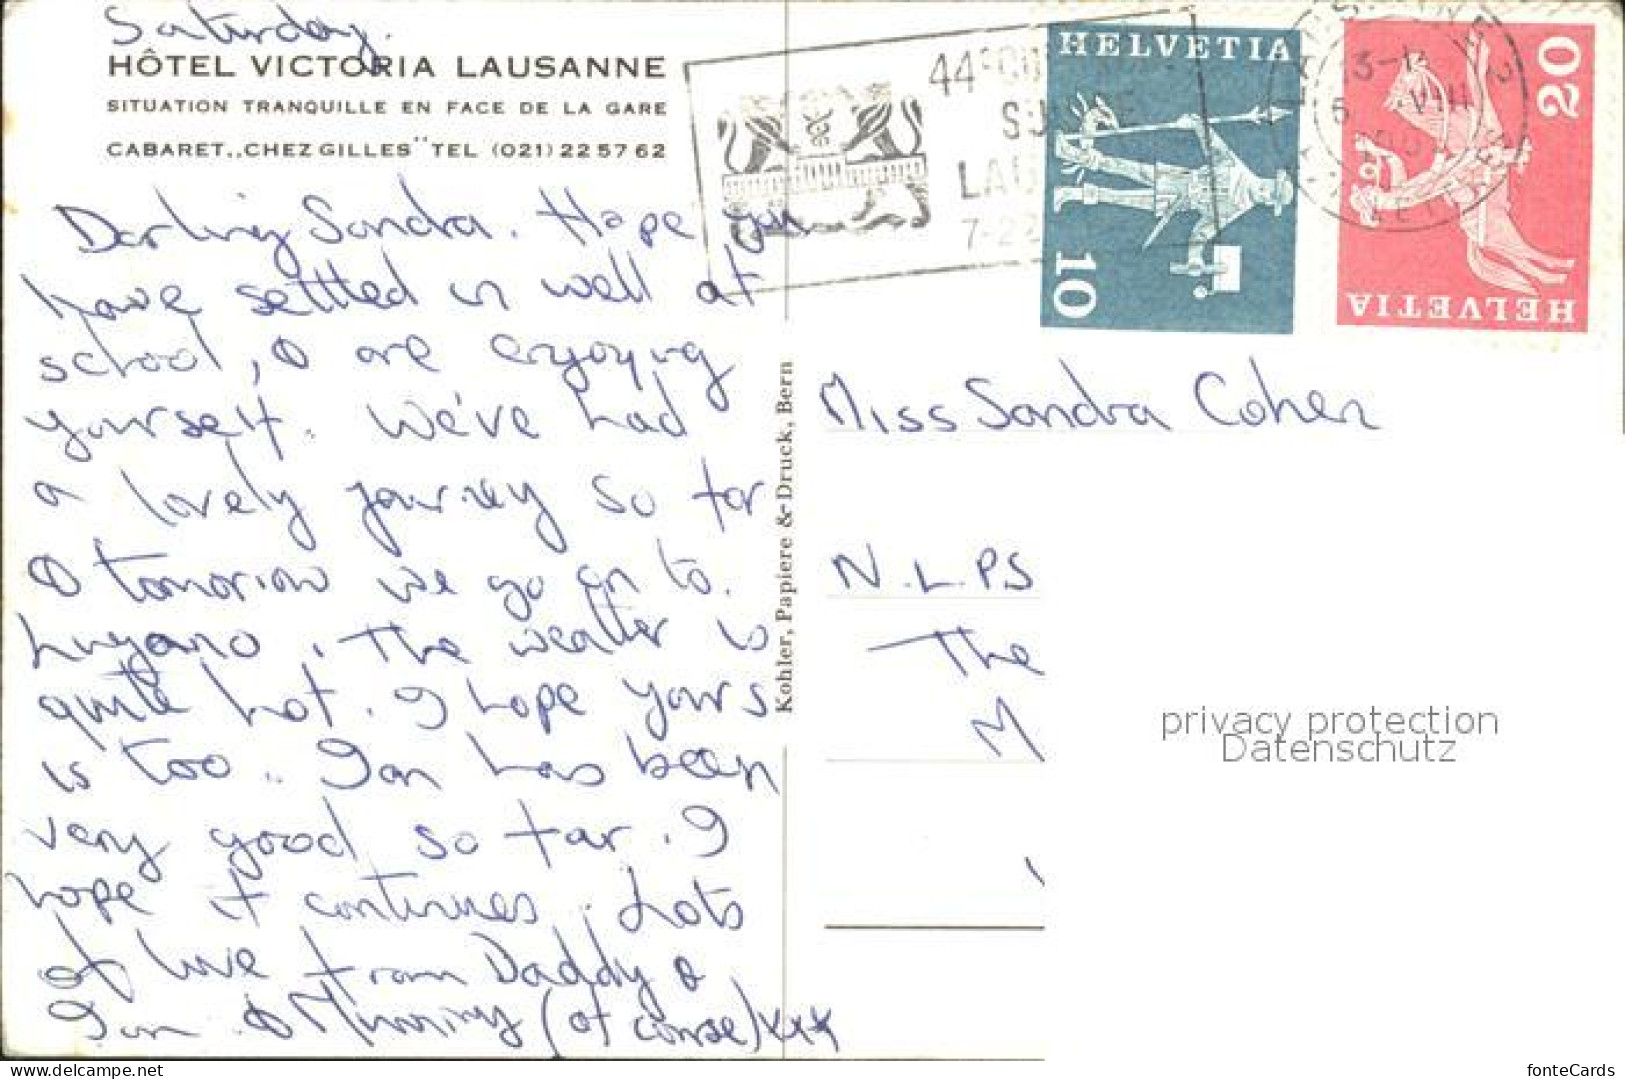 Saturday.
HÔTEL VICTORIA LAUSANNE
SITUATION TRANQUILLE EN FACE DE LA GARE
CABARET „CHEZ GILLES" TEL (021) 22 57 62
Darling Sandra. Hope you
have settled in well at
school, & are enjoying
yourself. We've had
a lovely journey so far
& tomorrow we go on to
Lugano. The weather is
quite hot. I hope yours
is too. Ian has been
very good so far. I
hope it continues. Lots
of love from Daddy &
Ian & Mummy (of course) xxx
Kohler, Papiere & Druck, Bern
44e
LAU
7-22
HELVETIA
10
HELVETIA
20
VIII
Miss Sandra Cohen
N.L.P.S
The
M
privacy protection
Datenschutz
www.delcampe.net
fonteCards